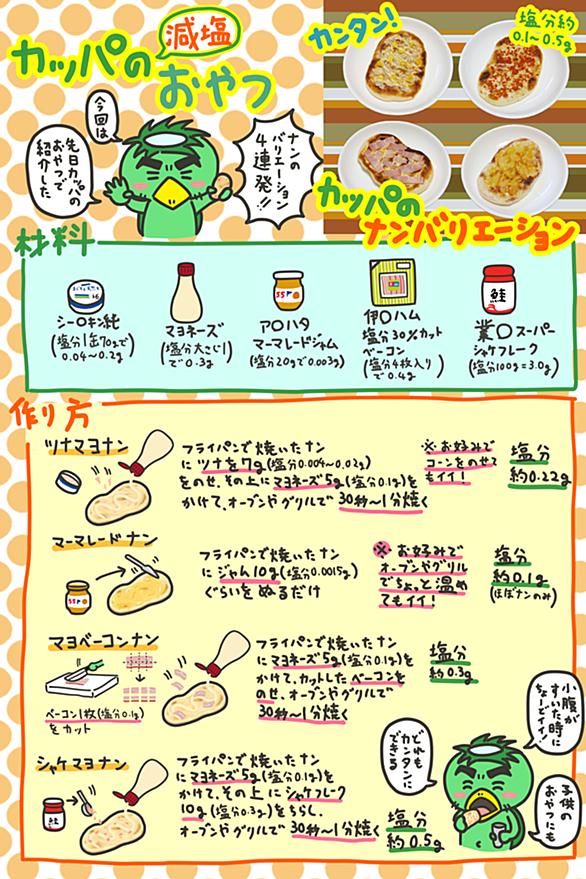 減塩
カッパの
おやつ
今回は
先日カッパの
おやつで
紹介した
ナンの
バリエーション
4連発!!
カンタン!
塩分約
0.1~0.5g
カッパの
ナンバリエーション
材料
シーOキン純
(塩分1缶70gで
0.04~0.2g)
マヨネーズ
(塩分大さじ1
で0.3g)
アOハタ
マーマレードジャム
(塩分20gで0.003g)
伊Oハム
塩分30%カット
ベーコン
(塩分4枚入り
で0.4g)
鮭
業Oスーパー
シャケフレーク
(塩分100g=3.0g)
作り方
ツナマヨナン
フライパンで焼いたナン
にツナを7g(塩分0.004~0.02g)
をのせ、その上にマヨネーズ5g(塩分0.1g)を
かけて、オーブンやグリルで30秒~1分焼く
※お好みで
コーンをのせて
もイイ!
塩分
約0.22g
マーマレードナン
フライパンで焼いたナン
にジャム10g(塩分0.0015g)
ぐらいをぬるだけ
※お好みで
オーブンやグリル
でちょっと温め
てもイイ!
塩分
約0.1g
(ほぼナンのみ)
マヨベーコンナン
ベーコン1枚(塩分0.1g)
をカット
フライパンで焼いたナン
にマヨネーズ5g(塩分0.1g)を
かけて、カットしたベーコンを
のせ、オーブンやグリルで
30秒~1分焼く
塩分
約0.3g
シャケマヨナン
鮭
フライパンで焼いたナン
にマヨネーズ5g(塩分0.1g)を
かけて、その上にシャケフレーク
10g(塩分0.3g)をちらし、
オーブンやグリルで30秒~1分焼く
塩分
約0.5g
どれも
カンタンに
できる
小腹が
すいた時に
ちょーどイイ!
子供の
おやつにも